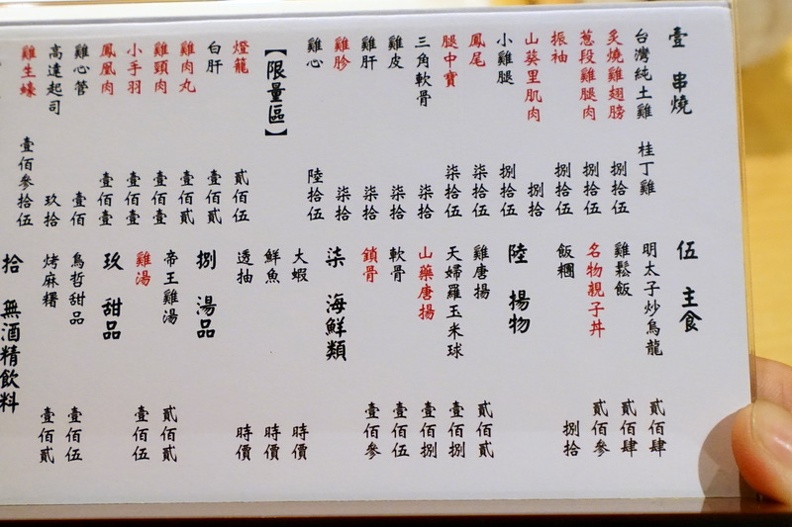 壹 串燒
台灣純土雞 桂丁雞
炙燒雞翅膀 捌拾伍
蔥段雞腿肉 捌拾伍
振袖 捌拾伍
山葵里肌肉 捌拾
小雞腿 捌拾伍
鳳尾 柒拾伍
腿中寶 柒拾伍
三角軟骨 柒拾
雞皮 柒拾
雞肝 柒拾
雞胗 柒拾
雞心 陸拾伍
【限量區】
燈籠 貳佰伍
白肝 壹佰貳
雞肉丸 壹佰貳
雞頸肉 壹佰壹
小手羽 壹佰壹
鳳凰肉 壹佰壹
雞心管 壹佰
高達起司 玖拾
雞生蠔 壹佰參拾伍
伍 主食
明太子炒烏龍 貳佰肆
雞鬆飯 貳佰肆
名物親子丼 貳佰參
飯糰 捌拾
陸 揚物
雞唐揚 貳佰貳
天婦羅玉米球 壹佰捌
山藥唐揚 壹佰捌
軟骨 壹佰伍
鎖骨 壹佰參
柒 海鮮類
大蝦 時價
鮮魚 時價
透抽 時價
捌 湯品
帝王雞湯 貳佰貳
雞湯 壹佰伍
玖 甜品
鳥哲甜品 壹佰伍
烤麻糬 壹佰貳
拾 無酒精飲料